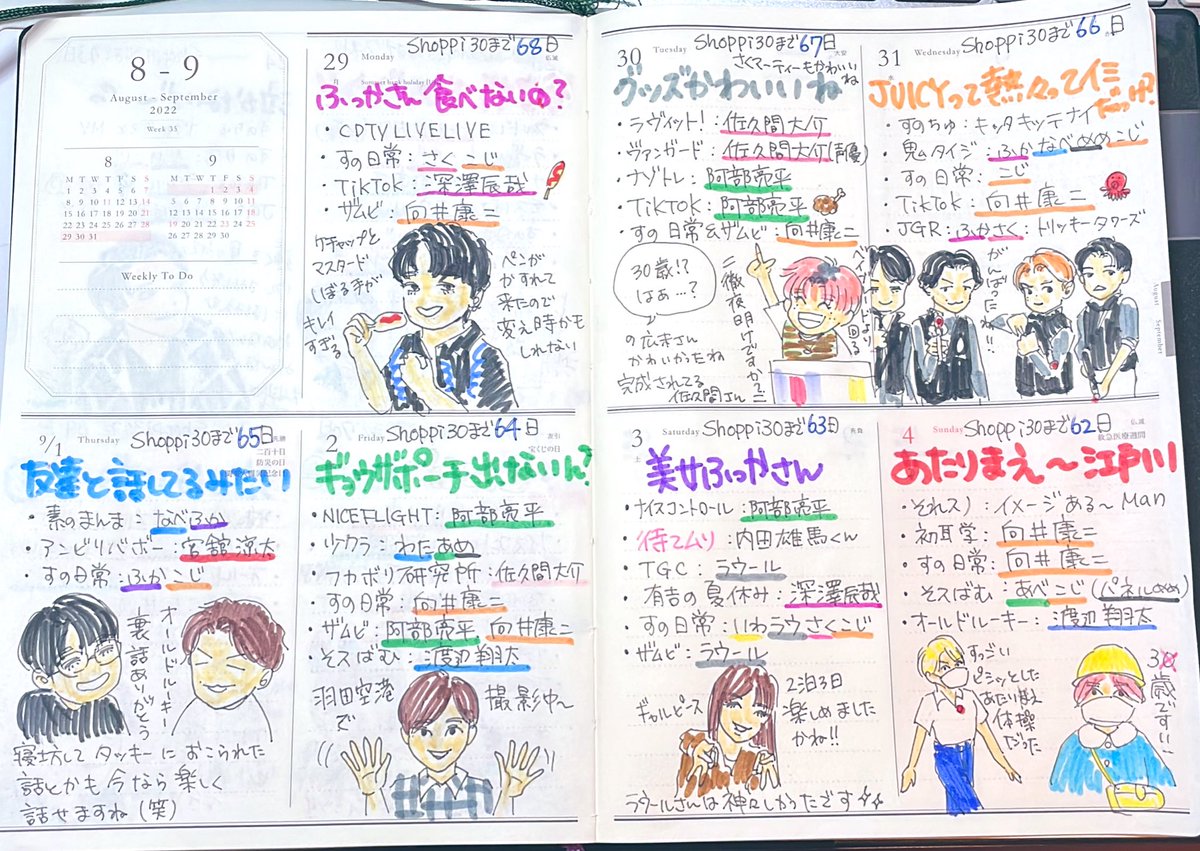 8 - 9
August - September
2022
Week 35
8
M T W T F S S
1 2 3 4 5 6 7
8 9 10 11 12 13 14
15 16 17 18 19 20 21
22 23 24 25 26 27 28
29 30 31
9
M T W T F S S
1 2 3 4
5 6 7 8 9 10 11
12 13 14 15 16 17 18
19 20 21 22 23 24 25
26 27 28 29 30
Weekly To Do
29
月
Monday
Shoppi30まで68日
仏滅
ふっかさん食べないの?
・CDTV LIVELIVE
・すの日常:さくこじ
・TikTok:深澤辰哉
・ザムビ:向井康二
ケチャップと
マスタード
しぼる手が
キレイ
すぎる
ペンが
かすれて
来たので
変え時かも
しれない
30
Tuesday
Shoppi30まで67日
大安
さくマーティーもかわいいね
グッズかわいいね
・ラヴィット!:佐久間大介
・ヴァンガード:佐久間大介(声優)
・ナゾトレ:阿部亮平
・TikTok:阿部亮平
・すの日常&ザムビ:向井康二
30歳!?
はぁ…?
の広末さん
かわいかったね
完成されてる
佐久間さん
二徹夜明けですか?
31
水
Wednesday
Shoppi30まで66日
JUICYって熱々ってイミだっけ?
・すのちゅ:キッタキッテナイ
・鬼タイジ:ふかなべめめこじ
・すの日常:こじ
・TikTok:向井康二
・JGR:ふかさく:トリッキータワーズ
がんばったね!!
August
September
9/1
Thursday
Shoppi30まで65日
先勝
二百十日
防災の日
友達と話してるみたい
・素のまんま:なべふか
・アンビリバボー:宮舘涼太
・すの日常:ふかこじ
オールドルーキー
裏話ありがとう
寝坊してタッキーにおこられた
話とかも今なら楽しく
話せますね(笑)
2
Friday
Shoppi30まで64日
友引
宝くじの日
ギョウザポーチ出ないん?
・NICEFLIGHT:阿部亮平
・ツクラ:わたあめ
・フカボリ研究所:佐久間大介
・すの日常:向井康二
・ザムビ:阿部亮平 向井康二
・そスばむ:渡辺翔太
羽田空港
で
撮影中〜
3
土
Saturday
Shoppi30まで63日
先負
美女ふっかさん
・ナイスコントロール:阿部亮平
・待てムリ:内田雄馬くん
・TGC:ラウール
・有吉の夏休み:深澤辰哉
・すの日常:いわラウさくこじ
・ザムビ:ラウール
ギャルピース
2泊3日
楽しめました
かね!!
ラウールさんは神々しかったです
4
Sunday
Shoppi30まで62日
仏滅
救急医療週間
あたりまえ〜江戸川
・それスノ:イメージある〜Man
・初耳学:向井康二
・すの日常:向井康二
・そスばむ:あべこじ(パネルめめ)
・オールドルーキー:渡辺翔太
すっごい
ビシッとした
あたりまえ
体操
だった
3歳です!!